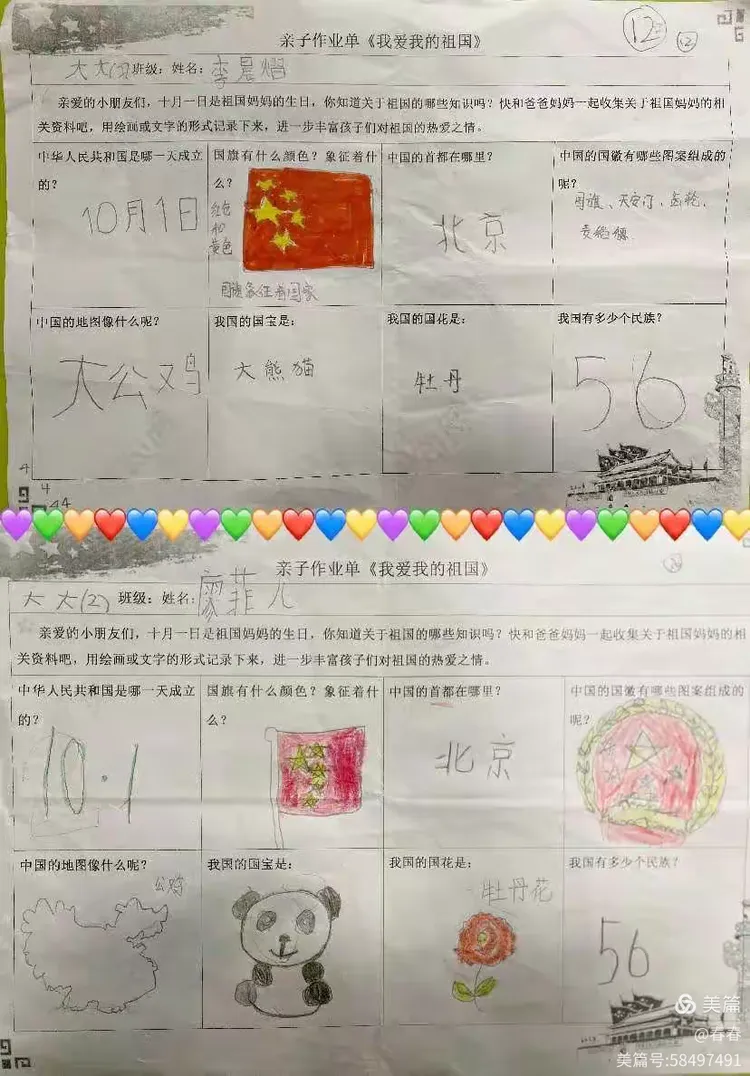 亲子作业单《我爱我的祖国》
12
大大(2)班级：姓名：李晨熠
亲爱的小朋友们，十月一日是祖国妈妈的生日，你知道关于祖国的哪些知识吗？快和爸爸妈妈一起收集关于祖国妈妈的相
关资料吧，用绘画或文字的形式记录下来，进一步丰富孩子们对祖国的热爱之情。
中华人民共和国是哪一天成立
的？
10月1日
国旗有什么颜色？象征着什
么？
红色
和
黄色
国旗象征着国家
中国的首都在哪里？
北京
中国的国徽有哪些图案组成的
呢？
国旗、天安门、齿轮、
麦稻穗
中国的地图像什么呢？
大公鸡
我国的国宝是：
大熊猫
我国的国花是：
牡丹
我国有多少个民族？
56
4
4
44
亲子作业单《我爱我的祖国》
大大(2) 班级：姓名：廖菲儿
亲爱的小朋友们，十月一日是祖国妈妈的生日，你知道关于祖国的哪些知识吗？快和爸爸妈妈一起收集关于祖国妈妈的相
关资料吧，用绘画或文字的形式记录下来，进一步丰富孩子们对祖国的热爱之情。
中华人民共和国是哪一天成立
的？
10.1
国旗有什么颜色？象征着什
么？
中国的首都在哪里？
北京
中国的国徽有哪些图案组成的
呢？
中国的地图像什么呢？
公鸡
我国的国宝是：
我国的国花是：
牡丹花
我国有多少个民族？
56
美篇
@春春
美篇号:58497491